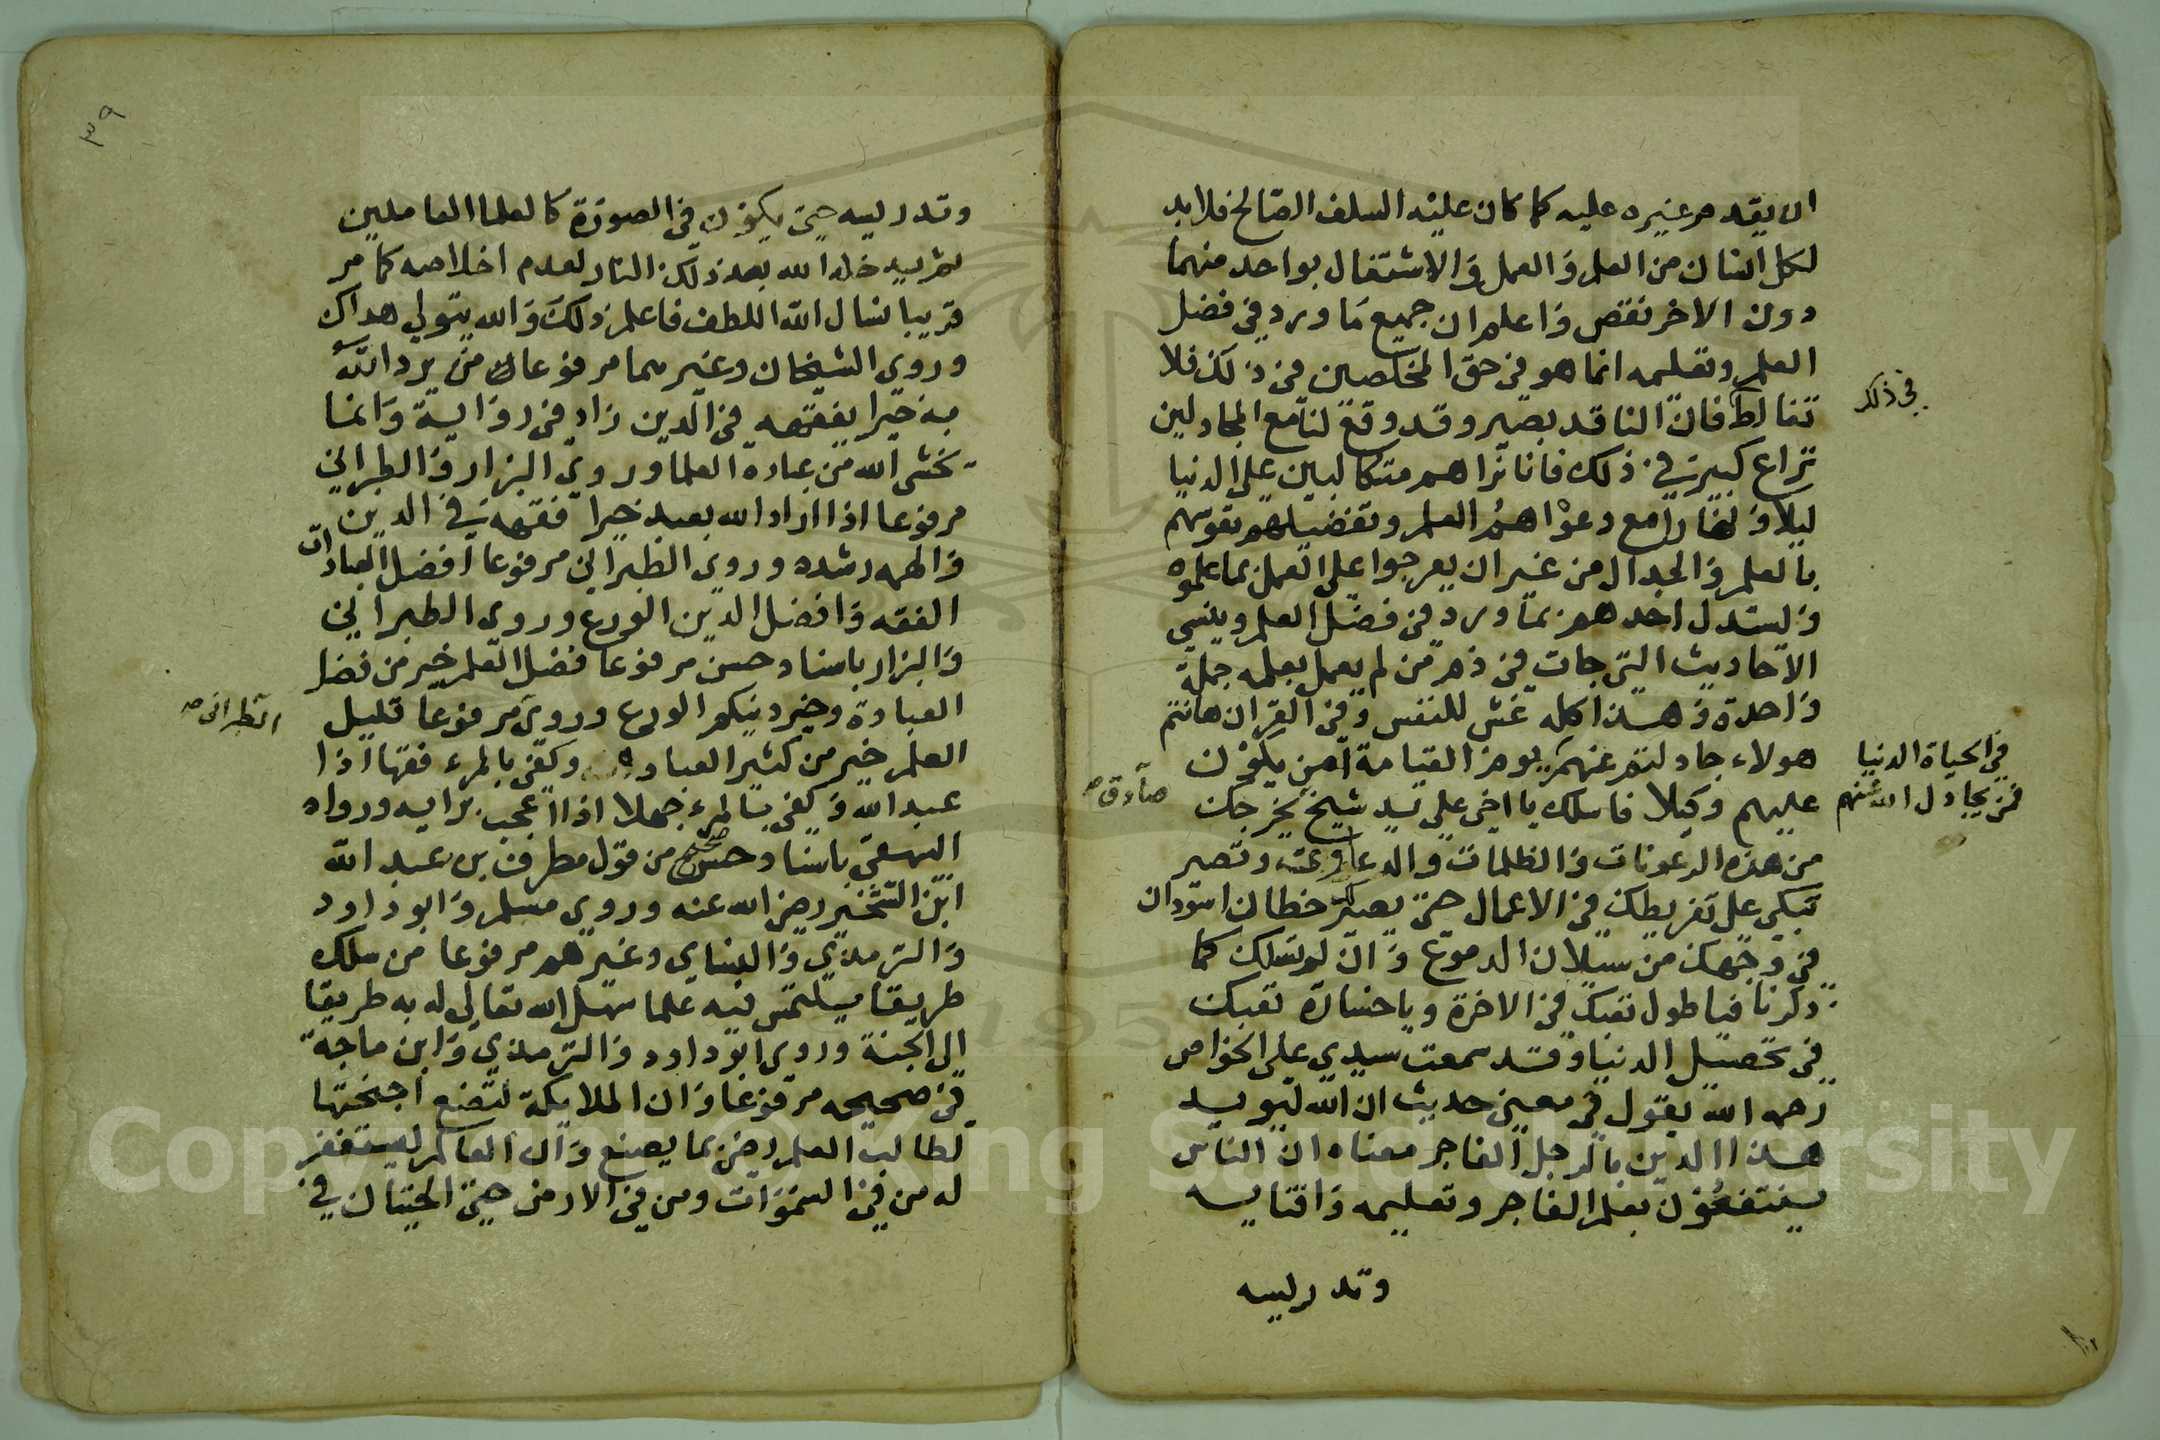 ان يقدم غيره عليه كما كان عليه السلف الصالح فلا بد
لكل انسان من العلم والعمل والاشتغال بواحد منهما
دون الاخر نقص واعلم ان جميع ما ورد في فضل
العلم وتعليمه انما هو في حق المخلصين في ذلك فلا
في ذلك
تغالط فان الناقد بصير وقد وقع لنا مع المجادلين
نزاع كبير في ذلك فانا نراهم متكالبين على الدنيا
ليلا ونهارا مع دعواهم العلم وتفضيلهم نفوسهم
بالعلم والجدال من غير ان يعرجوا على العمل بما علموه
ويستدل احدهم بما ورد في فضل العلم وينسى
الاحاديث التي جات في ذم من لم يعمل بعلمه جملة
واحدة وهذا كله غش للنفس وفي القران هاانتم
هولاء جادلتم عنهم يوم القيامة امن يكون
في الحياة الدنيا
فمن يجادل الله عنهم
عليهم وكيلا فاسلك يا اخي على يد شيخ يخرجك
صادق صح
من هذه الرعونات والظلمات والدعاوى وتصير
تبكي على تفريطك في الاعمال حتى يصير لك خطان اسودان
في وجهك من سيلان الدموع وان لم تسلك كما
ذكرنا فيا طول تعبك في الاخرة ويا خسارة تعبك
في تحصيل الدنيا وقد سمعت سيدي علي الخواص
رحمه الله يقول في معنى حديث ان الله ليويد
هذا الدين بالرجل الفاجر معناه ان الناس
ينتفعون بعلم الفاجر وتعليمه وافتايه
وتدريسه
٣٩
وتدريسه حتى يكون في الصورة كالعلما العاملين
ثم يدخله الله بعد ذلك النار لعدم اخلاصه كما مر
قريبا نسال الله اللطف فاعلم ذلك والله يتولى هداك
وروى الشيخان وغيرهما مرفوعا من يرد الله
به خيرا يفقهه في الدين زاد في رواية وانما
يخشى الله من عباده العلما وروى البزار والطبراني
مرفوعا اذا اراد الله بعبد خيرا فقهه في الدين
والهمه رشده وروى الطبراني مرفوعا افضل العبادات
الفقه وافضل الدين الورع وروى الطبراني
والبزار باسناد حسن مرفوعا فضل العلم خير من فضل
العبادة وخير دينكم الورع وروى مرفوعا قليل
الطبراني صح
العلم خير من كثير العبادة وكفى بالمرء فقها اذا
عبد الله وكفى بالمرء جهلا اذا اعجب برايه ورواه
البيهقي باسناد حسن صحيح من قول مطرف بن عبد الله
ابن الشخير رضي الله عنه وروى مسلم وابو داود
والترمذي والنساي وغيرهم مرفوعا من سلك
طريقا يلتمس فيه علما سهل الله تعالى له به طريقا
الى الجنة وروى ابو داود والترمذي وابن ماجة
في صحيحه مرفوعا وان الملايكة لتضع اجنحتها
لطالب العلم رضى بما يصنع وان العالم ليستغفر
له من في السموات ومن في الارض حتى الحيتان في
Copyright © King Saud University
1957